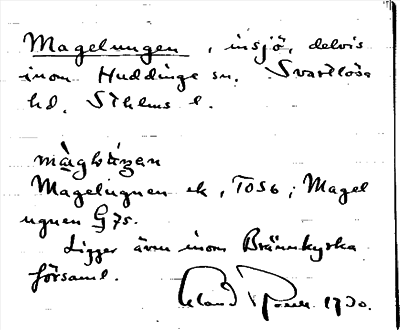 Magelungen, insjö, delvis
inom Huddinge sn. Svartlösa
hd. Sthlms l.
Magelugnen ek, TO56; Magel
ugnen G75.
Ligger även inom Brännkyrka
församl.
Erland Rosell 1930.